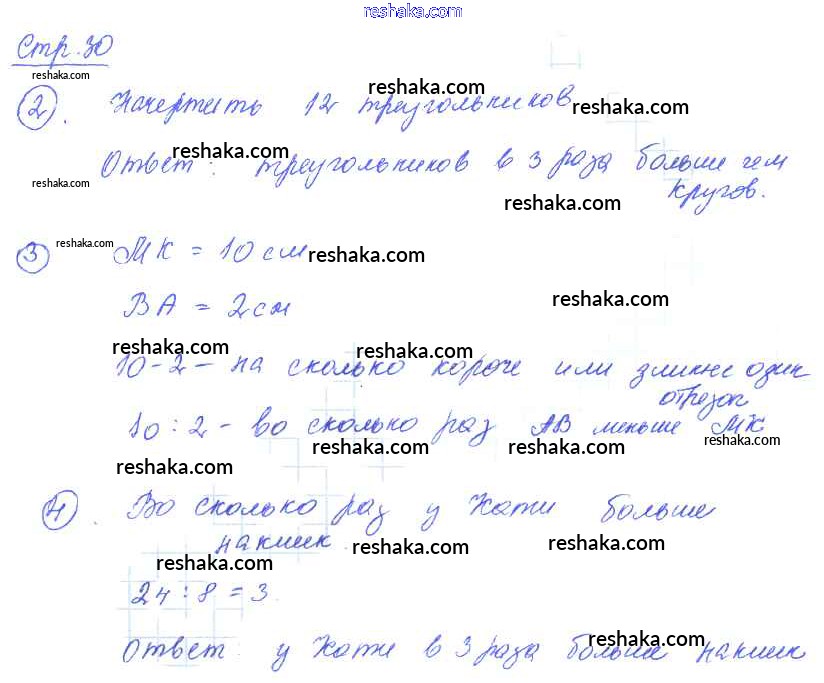 reshaka.com
Стр. 30
reshaka.com
2. Начертить 12 треугольников
reshaka.com
reshaka.com
reshaka.com
Ответ: треугольников в 3 раза больше чем
reshaka.com
кругов.
reshaka.com
3 reshaka.com МК = 10 см reshaka.com
ВА = 2 см reshaka.com
reshaka.com
reshaka.com
10-2 - на сколько короче или длиннее один
отрезок
10 : 2 - во сколько раз АВ меньше МК
reshaka.com
reshaka.com
reshaka.com
reshaka.com
4. Во сколько раз у Кати больше
наклеек
reshaka.com
reshaka.com
reshaka.com
24 : 8 = 3
reshaka.com
Ответ: у Кати в 3 раза больше наклеек